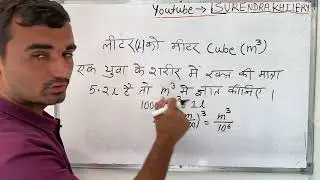 Youtube → SURENDRA KHILERY
लीटर(l) को मीटर Cube (m³)
एक युवा के शरीर में रक्त की मात्रा
5.2 l है तो m³ में ज्ञात कीजिए।
1000 1 l
)³ = m³/10⁶